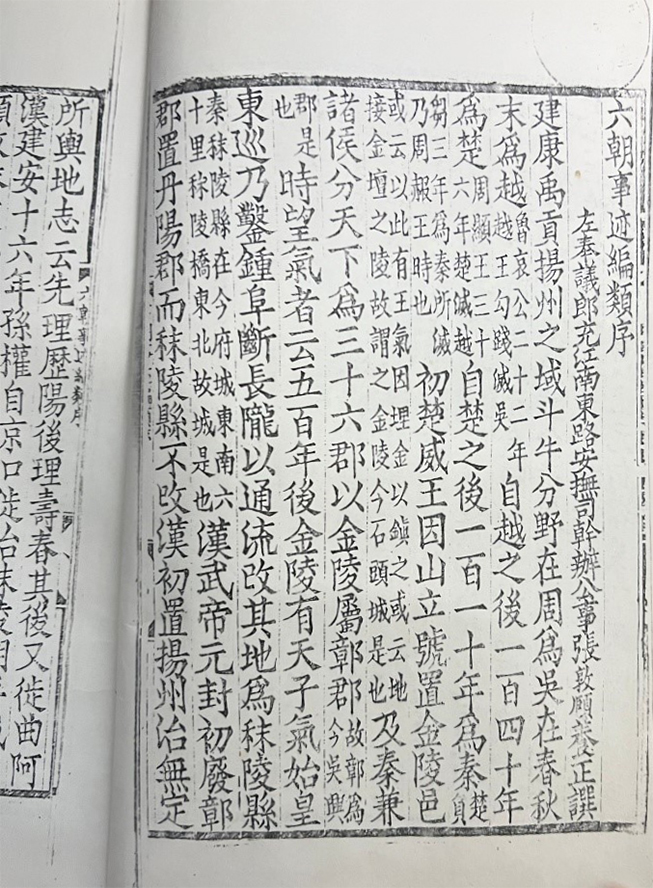 六朝事迹編類序
左奉議郎充江南東路安撫司幹辦公事張敦頤養正譔
建康禹貢揚州之域斗牛分野在周爲吳在春秋
末爲越魯哀公二十二年越王勾踐滅吳自越之後一百四十年
爲楚周顯王三十六年楚滅越自楚之後一百一十年爲秦楚負
芻三年爲秦所滅乃周赧王時也初楚威王因山立號置金陵邑
或云以此有王氣因埋金以鎮之或云地接金壇之陵故謂之金陵今石頭城是也及秦兼
諸侯分天下爲三十六郡以金陵屬鄣郡故鄣爲今吳興
郡是也時望氣者云五百年後金陵有天子氣始皇
東巡乃鑿鍾阜斷長隴以通流改其地爲秣陵縣
秦秣陵縣在今府城東南六十里秣陵橋東北故城是也漢武帝元封初廢鄣
郡置丹陽郡而秣陵縣不改漢初置揚州治無定
所輿地志云先理歷陽後理壽春其後又徙曲阿
漢建安十六年孫權自京口徙治秣陵明年